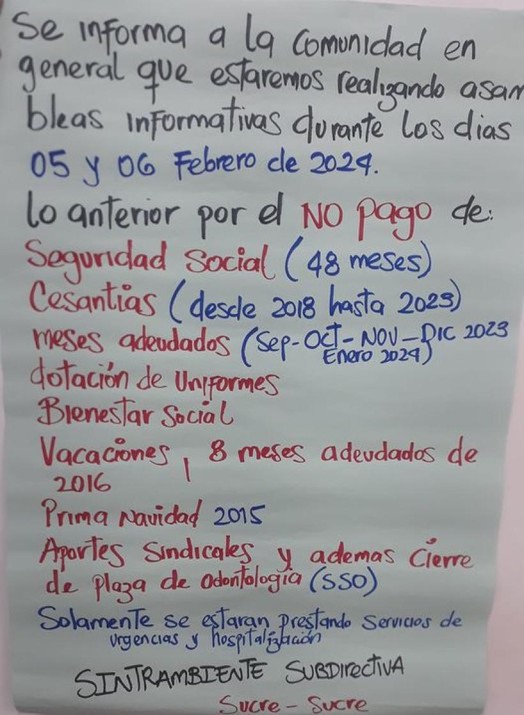 Se informa a la comunidad en
general que estaremos realizando asam
bleas informativas durante los dias
05 y 06 Febrero de 2024.
lo anterior por el NO pago de:
Seguridad Social (48 meses)
Cesantias (desde 2018 hasta 2023)
meses adeudados (Sep-OCT-NOV-DIC 2023
Enero 2024)
dotación de Uniformes
Bienestar Social
Vacaciones, 8 meses adeudados de
2016
Prima Navidad 2015
Aportes Sindicales y ademas Cierre
de plaza de odontologia (SSO)
Solamente se estaran prestando servicios de
urgencias y hospitalización
SINTRAMBIENTE SUBDIRECTIVA
Sucre - Sucre